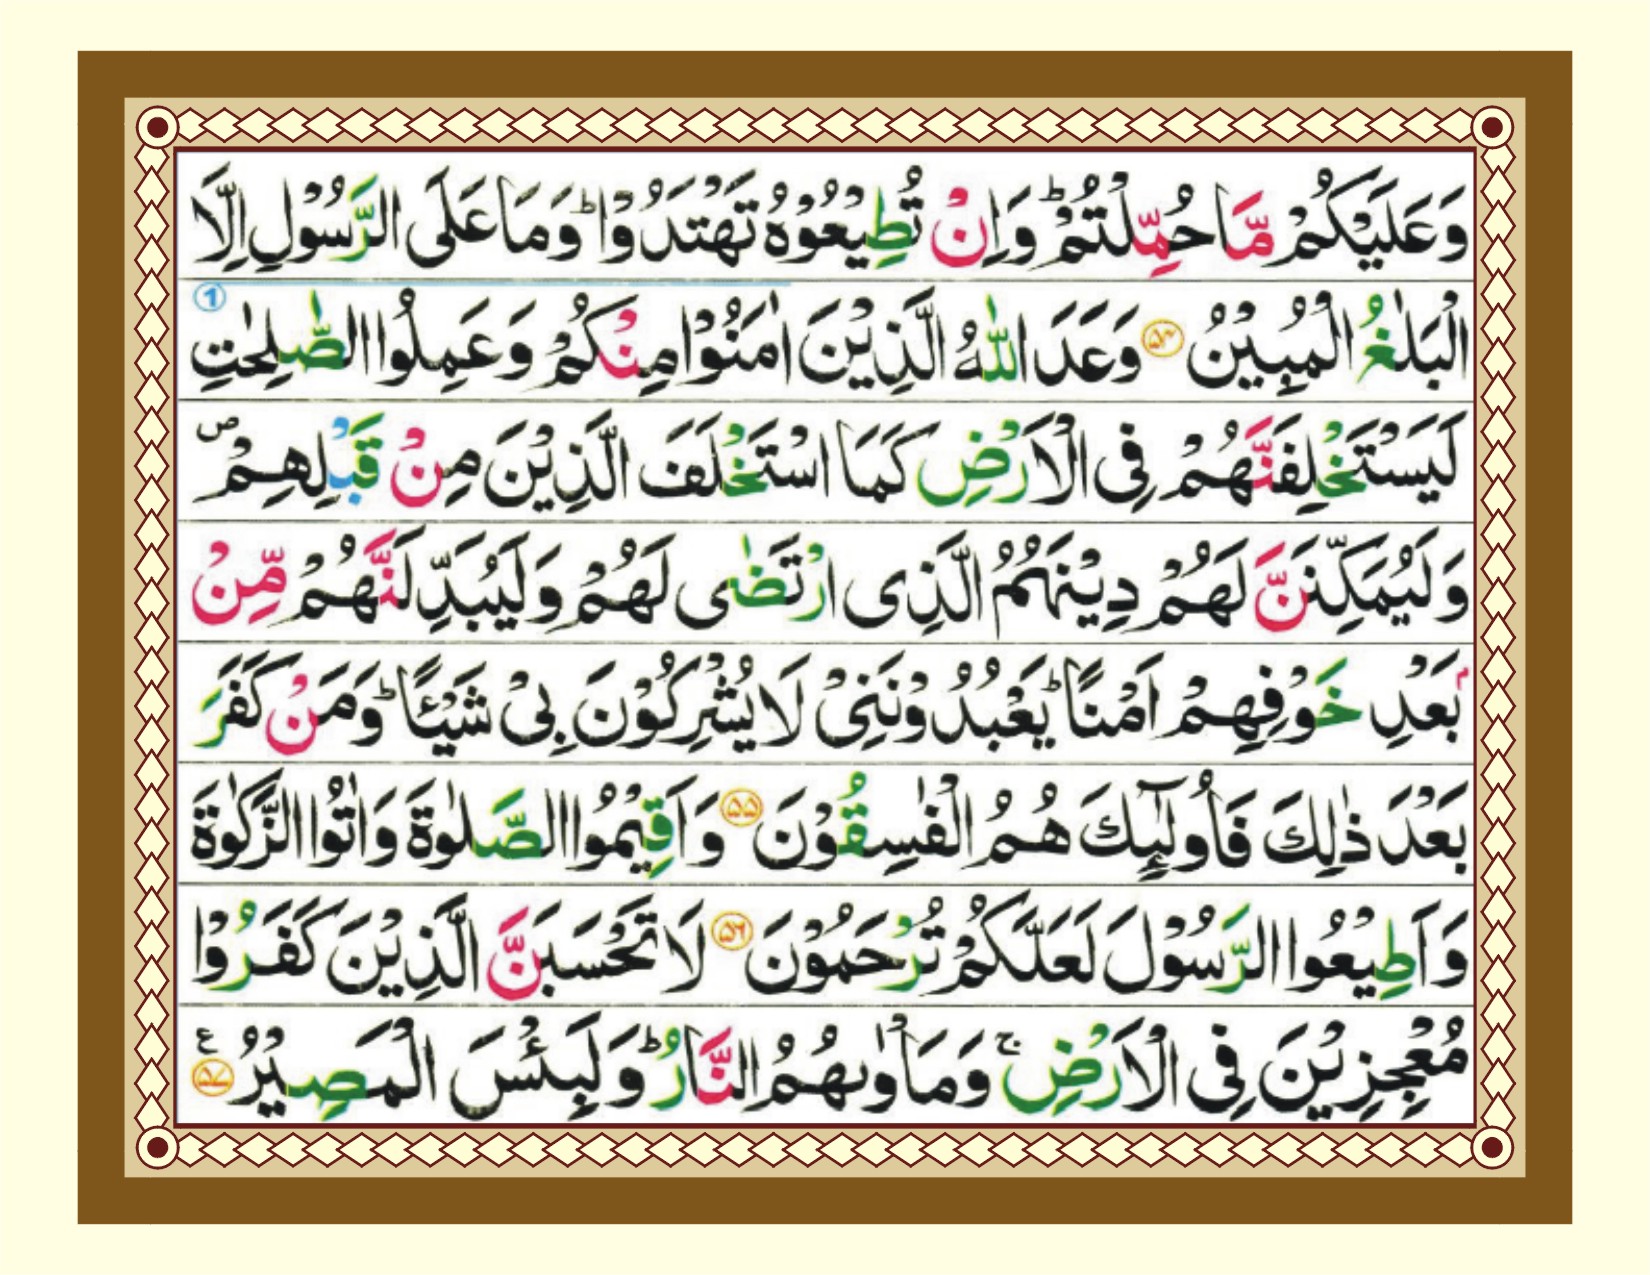 وَعَلَيْكُمْ مَّا حُمِّلْتُمْ ؕ وَاِنْ تُطِيْعُوْهُ تَهْتَدُوْا ؕ وَمَا عَلَى الرَّسُوْلِ اِلَّا
الْبَلٰغُ الْمُبِيْنُ ۵۴ وَعَدَ اللّٰهُ الَّذِيْنَ اٰمَنُوْا مِنْكُمْ وَعَمِلُوا الصّٰلِحٰتِ ①
لَيَسْتَخْلِفَنَّهُمْ فِى الْاَرْضِ كَمَا اسْتَخْلَفَ الَّذِيْنَ مِنْ قَبْلِهِمْ ص
وَلَيُمَكِّنَنَّ لَهُمْ دِيْنَهُمُ الَّذِى ارْتَضٰى لَهُمْ وَلَيُبَدِّلَنَّهُمْ مِّنْۢ
بَعْدِ خَوْفِهِمْ اَمْنًا ؕ يَعْبُدُوْنَنِىْ لَا يُشْرِكُوْنَ بِىْ شَيْـًٔا ؕ وَمَنْ كَفَرَ
بَعْدَ ذٰلِكَ فَاُولٰٓئِكَ هُمُ الْفٰسِقُوْنَ ۵۵ وَاَقِيْمُوا الصَّلٰوةَ وَاٰتُوا الزَّكٰوةَ
وَاَطِيْعُوا الرَّسُوْلَ لَعَلَّكُمْ تُرْحَمُوْنَ ۵۶ لَا تَحْسَبَنَّ الَّذِيْنَ كَفَرُوْا
مُعْجِزِيْنَ فِى الْاَرْضِ ۚ وَمَاْوٰىهُمُ النَّارُ ؕ وَلَبِئْسَ الْمَصِيْرُ ۵۷ ع